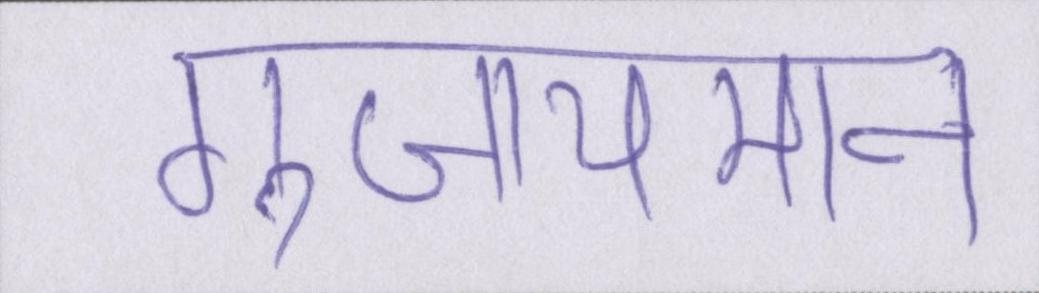 गूजायमान